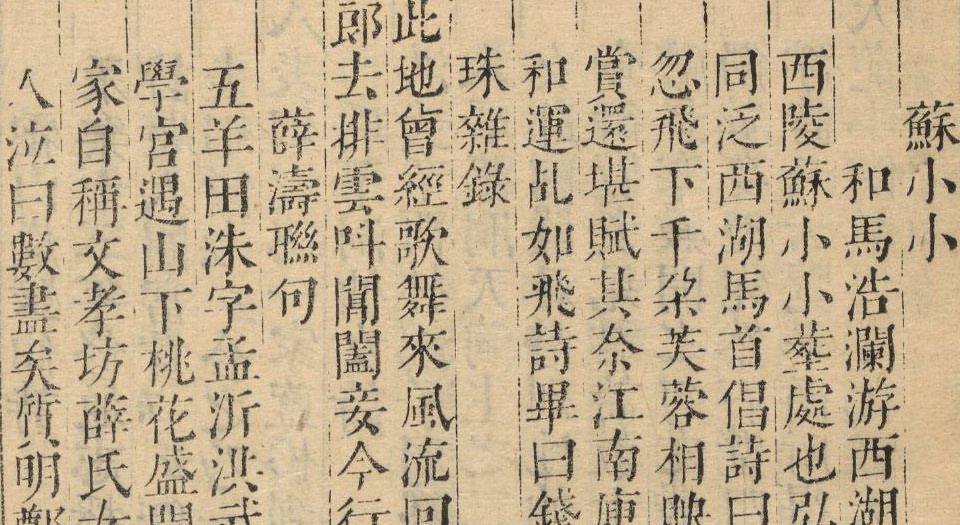 蘇小小
和馬浩瀾游西湖
西陵蘇小小塟處也弘
同泛西湖馬首倡詩曰
忽飛下千朶芙蓉相映
賞還堪賦其奈江南庾
和運乩如飛詩畢曰錢
珠雜錄
此地曾經歌舞來風流回
郎去排雲呌閶闔妾今行
薛濤聯句
五羊田洙字孟沂洪武
學宮遇山下桃花盛開
家自稱文孝坊薛氏女
人泣曰數盡矣質明鄭